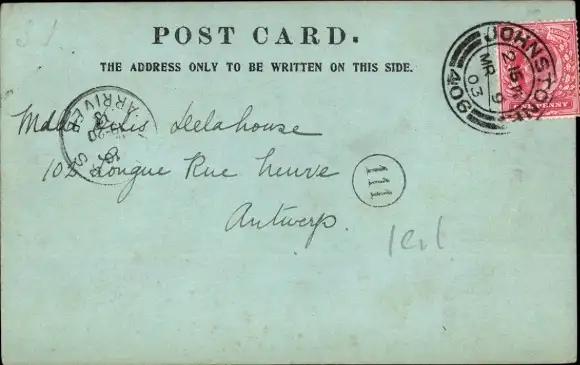 POST CARD.
THE ADDRESS ONLY TO BE WRITTEN ON THIS SIDE.
JOHNSTONE
2.15 PM
MR 9
03
409
PENNY
ARRIVÉE
Delahouse
102 Longue Rue Neuve
111
Antwerp.